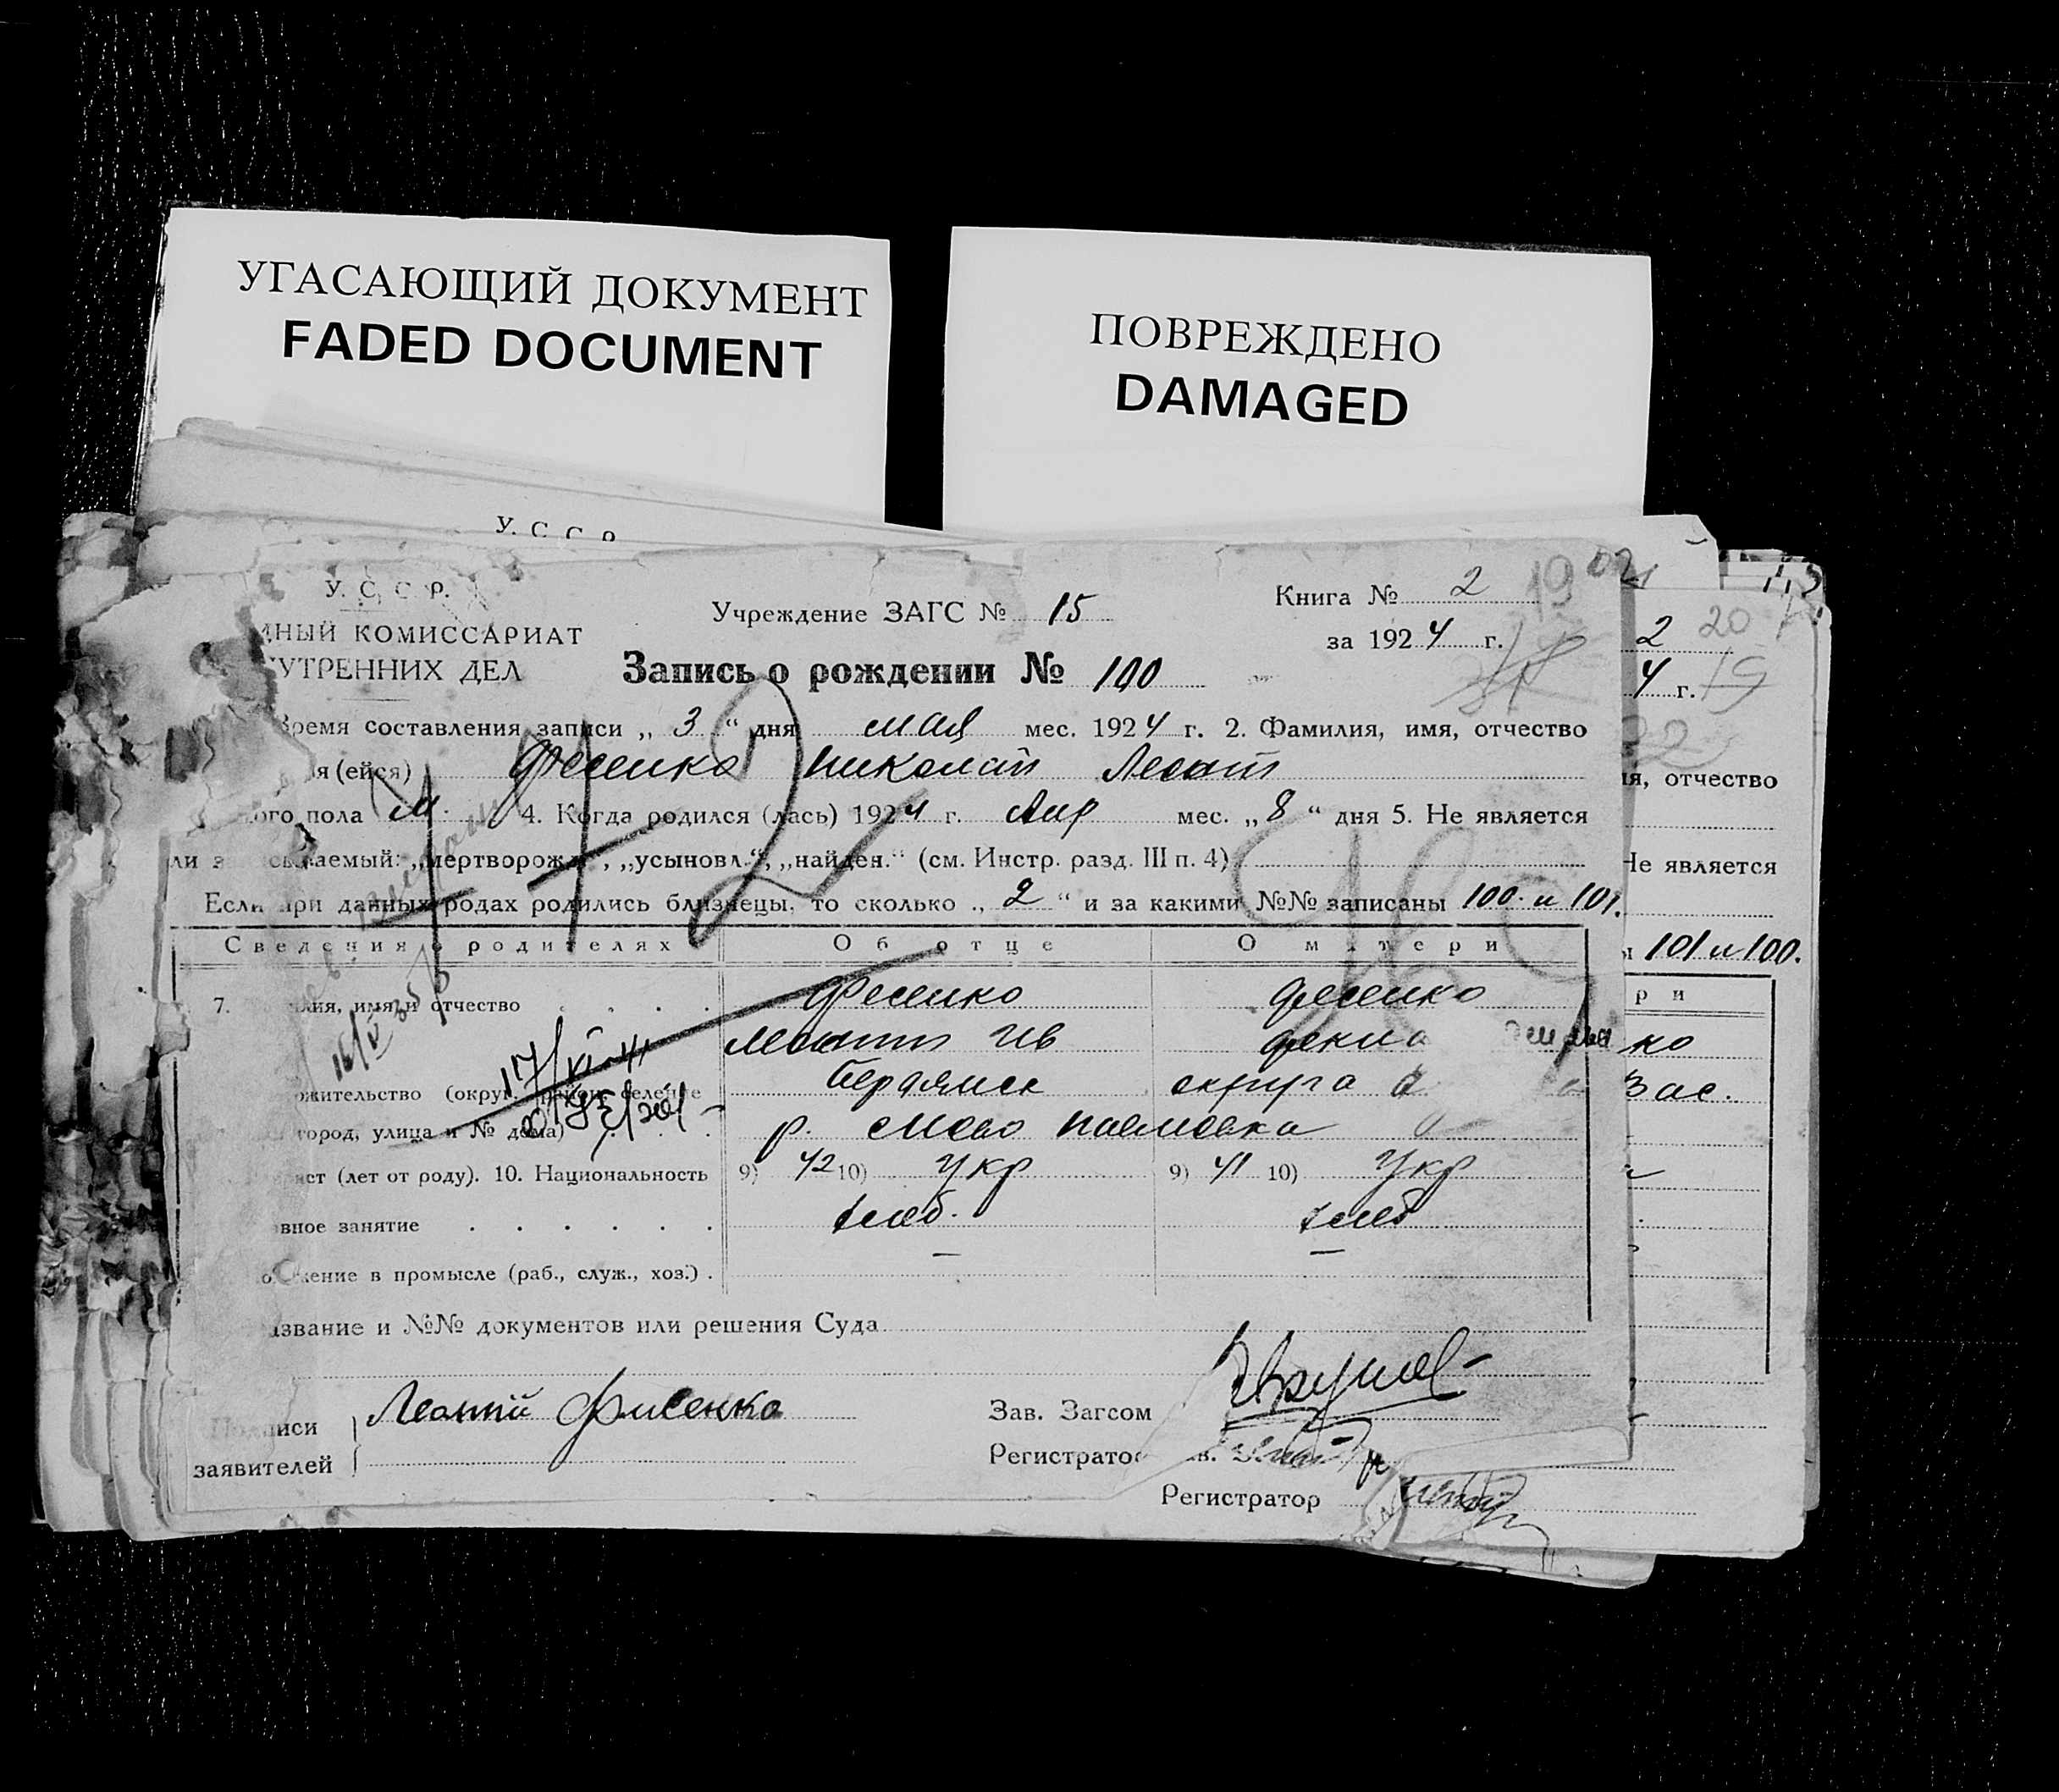 УГАСАЮЩИЙ ДОКУМЕНТ
FADED DOCUMENT
ПОВРЕЖДЕНО
DAMAGED
У. С С Р
У. С. С. Р.
ДНЫЙ КОМИССАРИАТ
УТРЕННИХ ДЕЛ
Учреждение ЗАГС № 15
Книга № 2
за 1924 г.
Запись о рождении № 100
Время составления записи „ 3 “ дня мая мес. 1924 г. 2. Фамилия, имя, отчество
я (ейся) Фесенко Николай Леонт
ого пола м. 4. Когда родился (лась) 1924 г. Апр мес. „ 8 “ дня 5. Не является
ли з аемый: „мертворожд.“, „усыновл.“, „найден.“ (см. Инстр. разд. III п. 4)
Если при данных родах родились близнецы, то сколько „ 2 “ и за какими №№ записаны 100 и 101.
Сведения о родителях Об отце О матери
7. лия, имя и отчество Фесенко Фесенко
Леонтий Ив
жительство (округ, район, селение Бердянск округа
город, улица и № дома) р. село
ст (лет от роду). 10. Национальность 9) 42 10) Укр 9) 41 10) Укр
вное занятие хлеб. хлеб
жение в промысле (раб., служ., хоз.) . — —
звание и №№ документов или решения Суда
Подписи
заявителей
Леонтий Фисенко
Зав. Загсом
Регистратор
в.
Регистратор
16/V 35
17/VI-41
2 20
4 г. 19
я, отчество
Не является
101 и 100.
р и
ко
Зас.